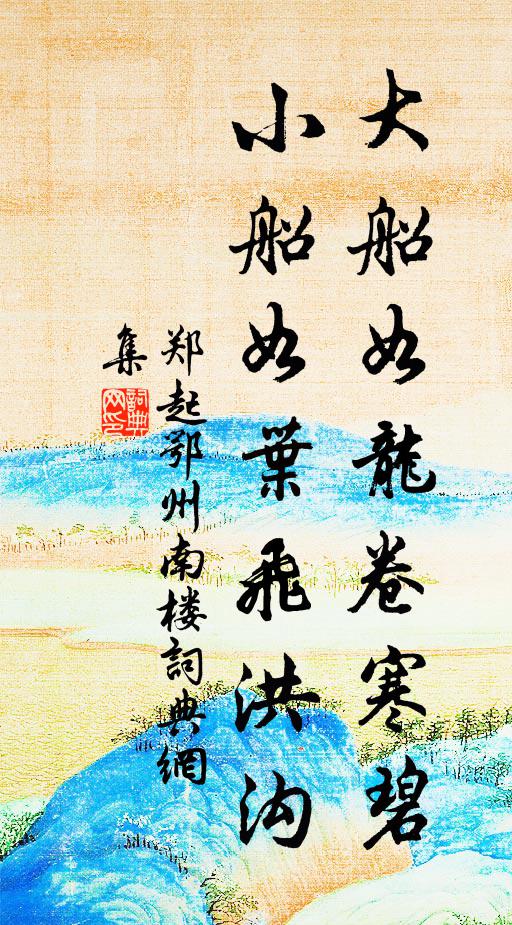 大船如龍卷寒碧
小船如葉飛洪沟
郑起鄂州南楼詞典網
集
詞典
网印